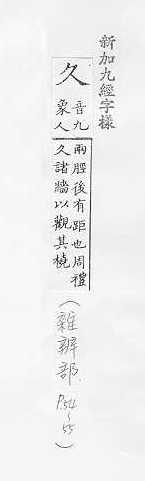 新加九經字樣
久
音九
象人
兩脛後有距也周禮
久諸牆以觀其橈
(雜辨部 P.54~55)